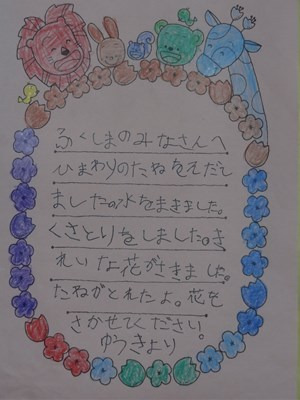 ふくしまのみなさんへ
ひまわりのたねをえだし
ました。水をまきました。
くさとりをしました。き
れいな花がさきました。
たねがとれたよ。花を
さかせてください。
ゆうきより